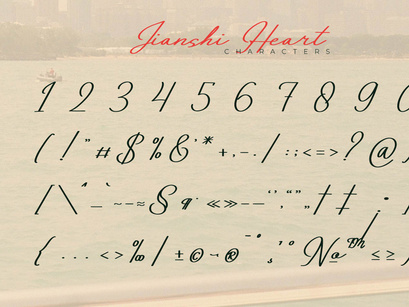 Jianshi Heart
CHARACTERS
1 2 3 4 5 6 7 8 9 0
( ! " # $ % & ' * + , - . / : ; < = > ? @
/ \ ^ _ ` – ~ ≈ § ¶ · « » – — ‘ ’ ‚ “ ” „ † ‡
{ . . . < > ‰ / ± © ¬ ® ¯ ° ¸ ’ º № ™ ≤ ≥